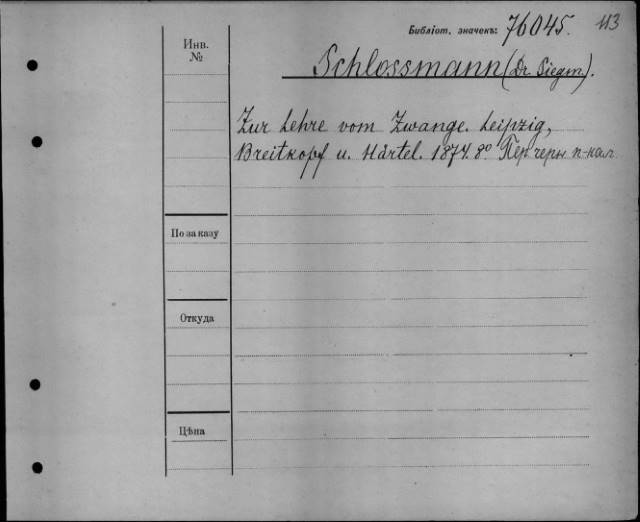 Библіот. значекъ: 76045. 113
Инв. №
Schlossmann (Dr. Siegm.).
Zur Lehre vom Zwange. Leipzig,
Breitkopf u. Härtel. 1874. 8º Пер. черн
По заказу
Откуда
Цѣна